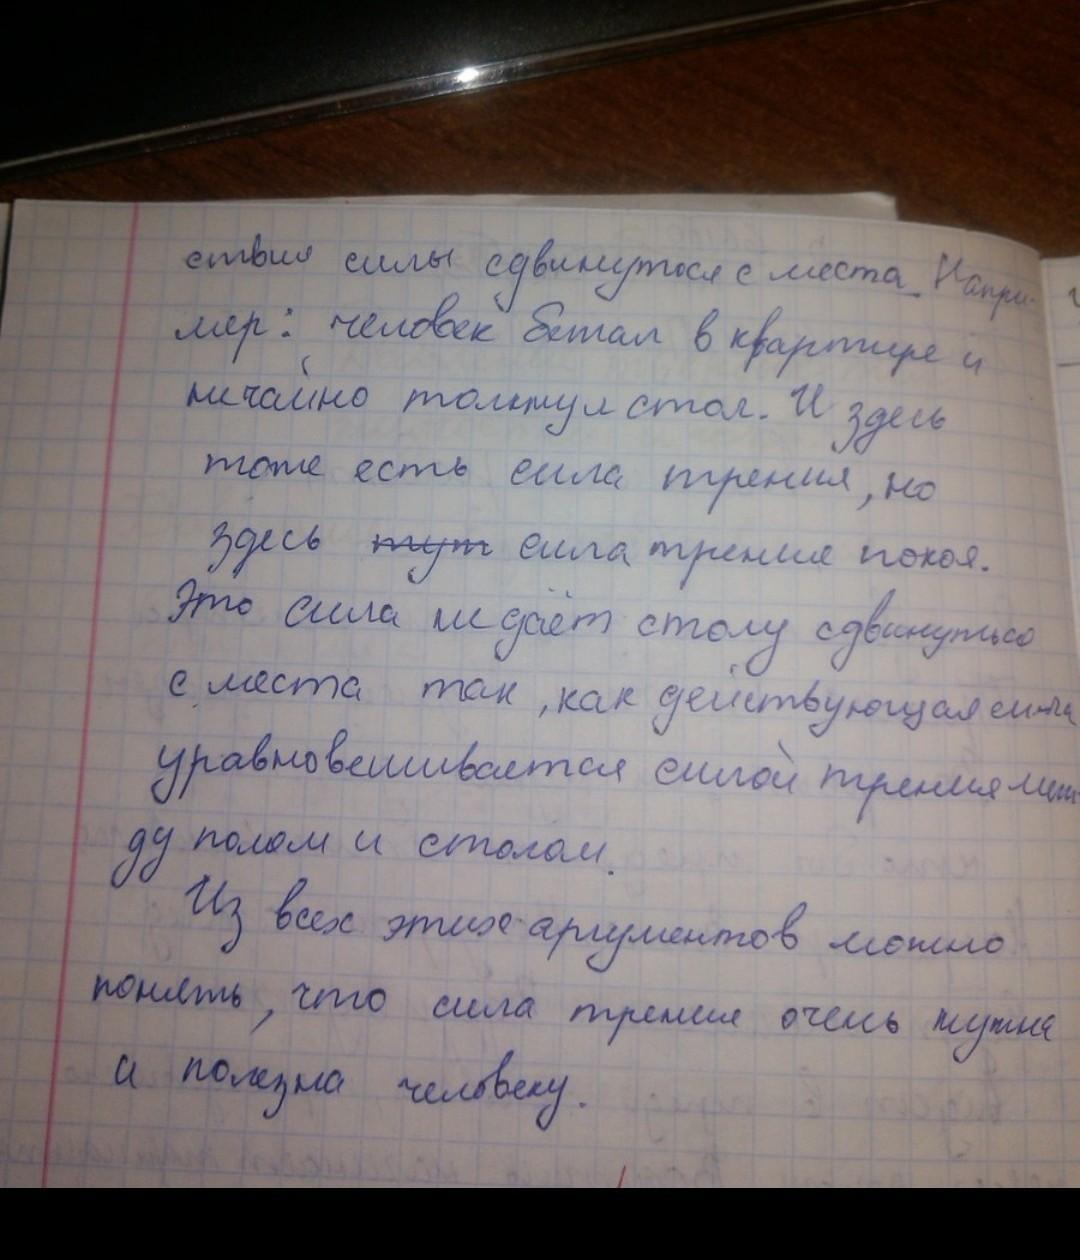 ствия силы сдвинуться с места. Напри-
мер: человек бежал в квартире и
ничайно толкнул стол. И здесь
тоже есть сила трения, но
здесь тут сила трения покоя.
Это сила не даёт столу сдвинуться
с места так, как действующая сила
уравновешивается силой трения меж
ду полом и столом.
Из всех этих аргументов можно
понять, что сила трения очень нужна
и полезна человеку.